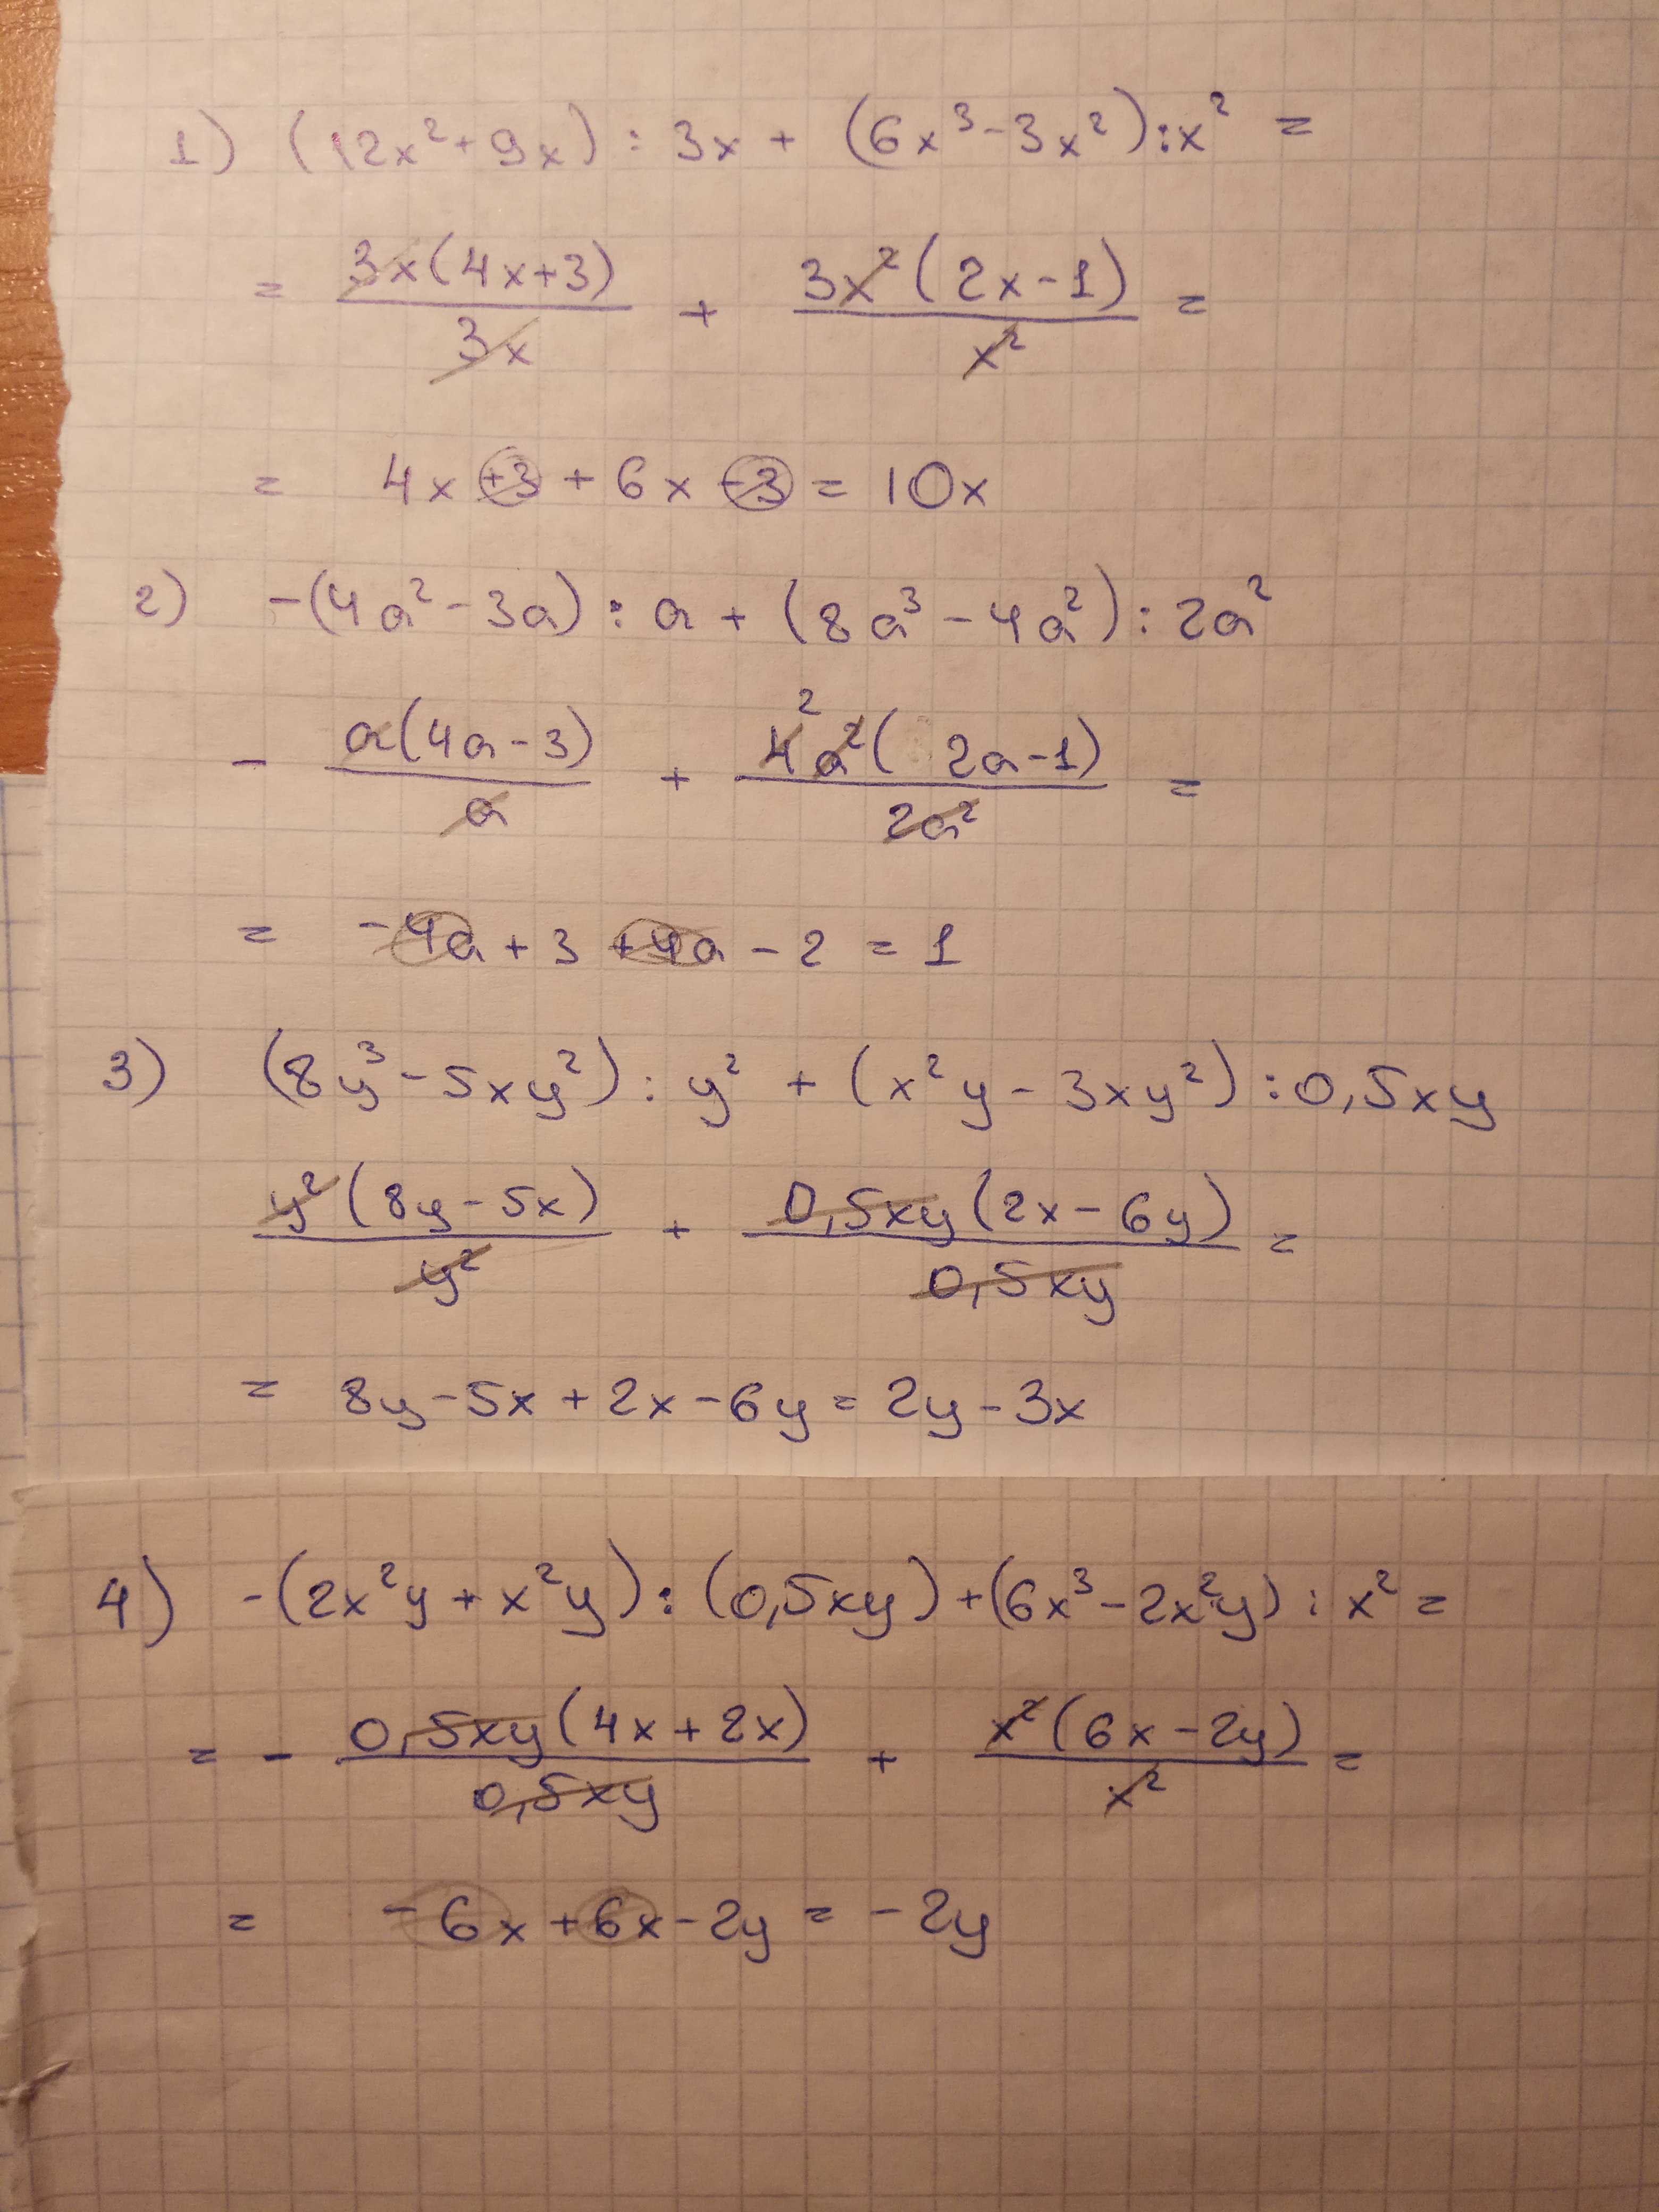 1) (12x²+9x) : 3x + (6x³-3x²):x² =
= 3x(4x+3)/3x + 3x²(2x-1)/x² =
= 4x +3 + 6x -3 = 10x
2) -(4a²-3a) : a + (8a³-4a²) : 2a²
- a(4a-3)/a + 4²a²(2a-1)/2a² =
= -4a + 3 +4a - 2 = 1
3) (8y³-5xy²) : y² + (x²y-3xy²) : 0,5xy
y²(8y-5x)/y² + 0,5xy(2x-6y)/0,5xy =
= 8y-5x+2x-6y = 2y-3x
4) -(2x²y+x²y) : (0,5xy)+(6x³-2x²y) : x² =
= - 0,5xy(4x+2x)/0,5xy + x²(6x-2y)/x² =
= -6x +6x-2y = -2y